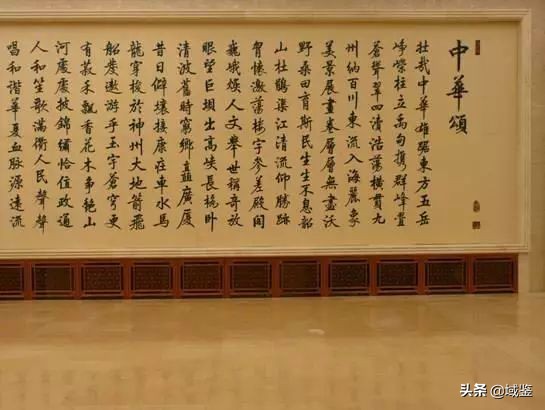 中華頌
壮哉中華雄踞東方五岳
峥嶸柱立禹甸携群峰疊
蒼聳翠四瀆浩蕩橫貫九
州納百川東流入海麗象
美景展畫卷層層無盡沃
野桑田育斯民生生不息韶
山杜鵑渠江清流仰勝跡
胸懷激蕩楼宇参差殿閣
巍峨煥人文舉世稱奇放
眼望巨壩出高峽長橋卧
清波舊時窮鄉矗廣厦
昔日僻壤接康莊車水馬
龍穿梭於神州大地箭飛
船度遨游乎玉宇蒼穹更
有菽禾飄香花木争艳山
河處處披錦繡恰值政通
人和笙歌满衢人民聲聲
唱和谐華夏血脉源遠流
头条 @域鉴